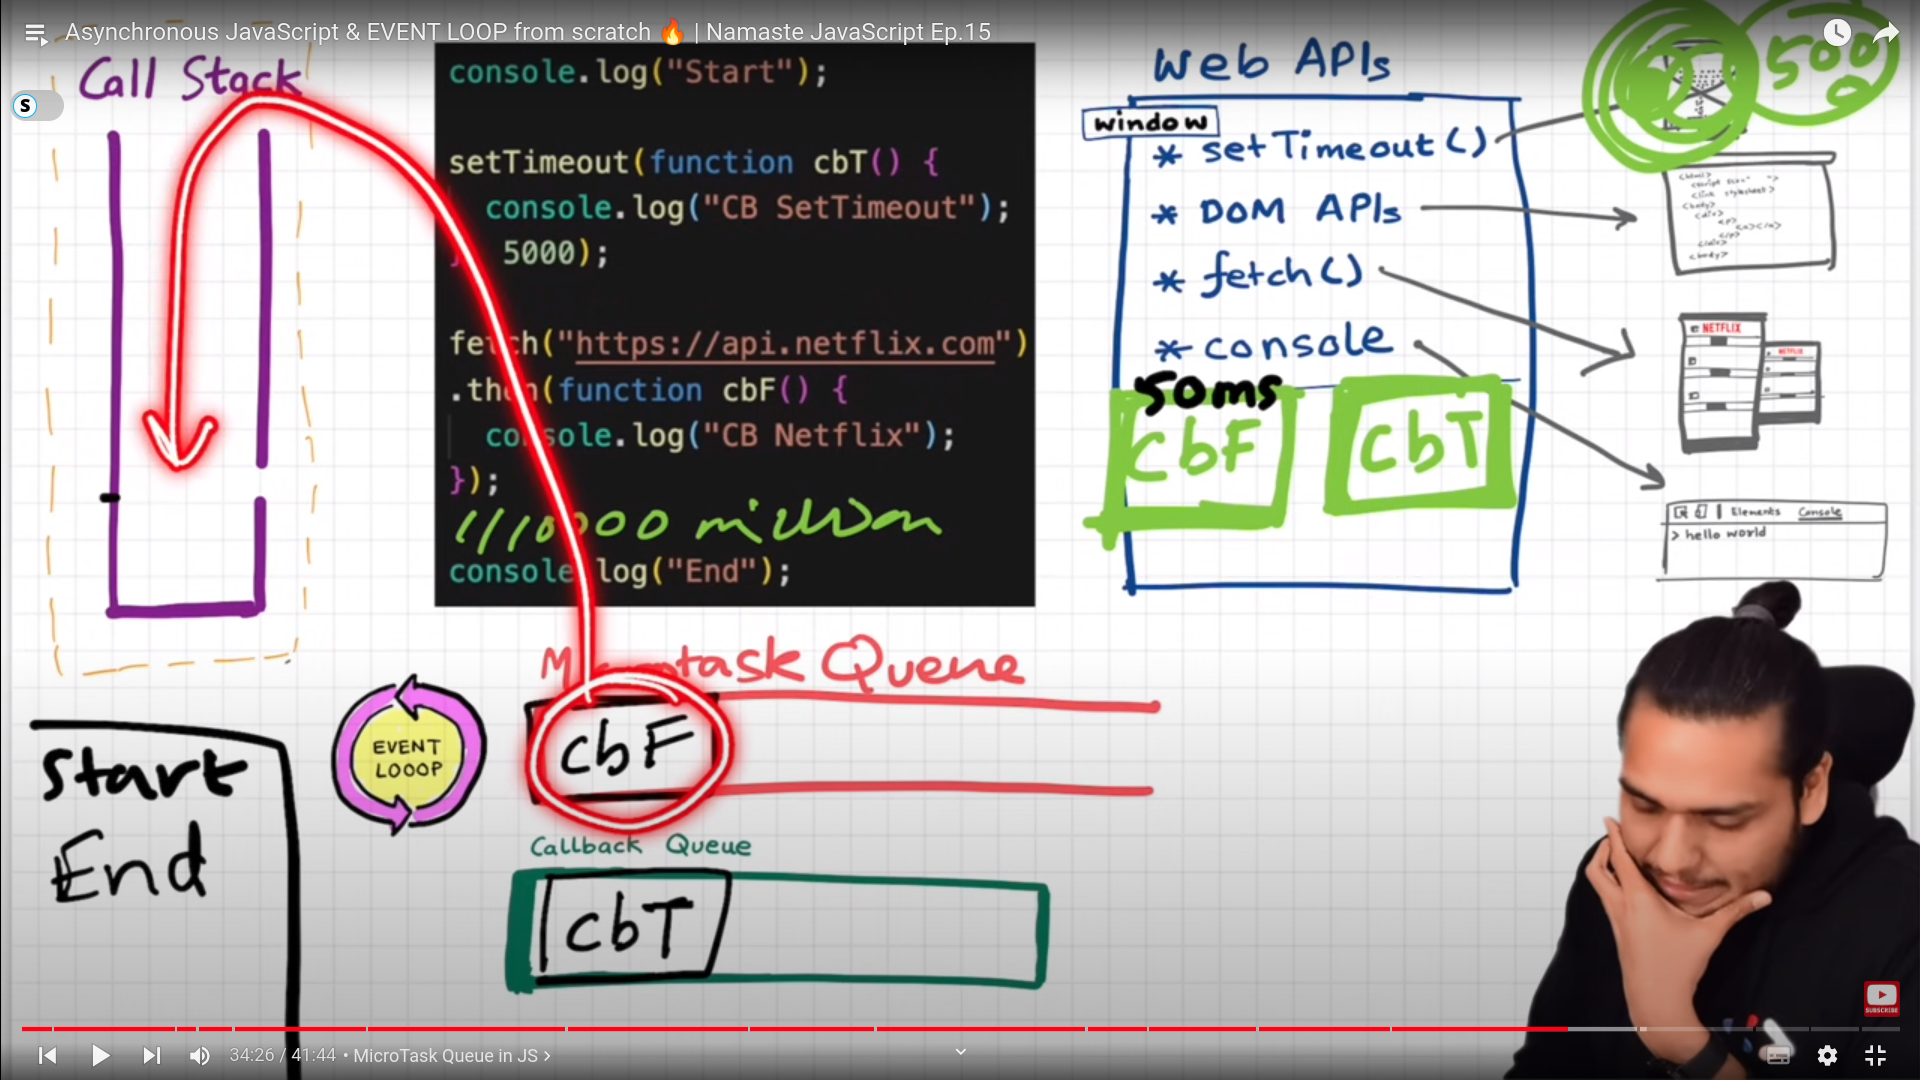 Asynchronous JavaScript & EVENT LOOP from scratch 🔥 | Namaste JavaScript Ep.15
Call Stack
S
console.log("Start");
setTimeout(function cbT() {
console.log("CB SetTimeout");
5000);
fetch("https://api.netflix.com")
.then(function cbF() {
console.log("CB Netflix");
});
1//10000 million
console.log("End");
Web APIs
window
* setTimeout()
* DOM APIs
* fetch()
* console
50ms
CbF
CbT
5000
<body>
NETFLIX
NETFLIX
Elements Console
> hello world
Microtask Queue
cbF
EVENT
LOOOP
Callback Queue
cbT
Start
End
SUBSCRIBE
34:26 / 41:44 • MicroTask Queue in JS >